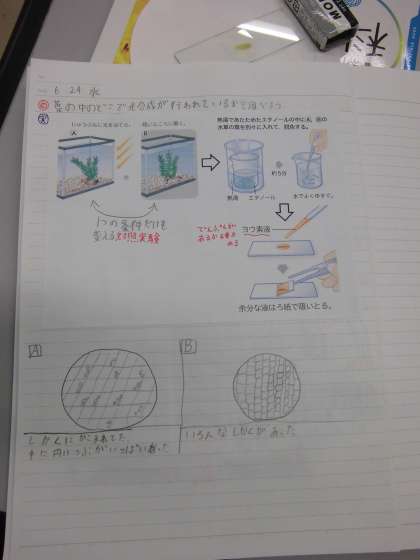 MO
科
6 24 水
葉の中のどこで光合成が行われているか調べよう
じゅうぶんに光を当てる。
暗いところに置く。
A
B
熱湯であたためたエタノールの中にA、Bの
水草の葉を別々に入れて、脱色する。
約5分
熱湯
エタノール
水でよくゆすぐ。
1つの条件だけを
変える対照実験
でんぷんが
あるかを
ヨウ素液
余分な液はろ紙で吸いとる。
A
B
しかくに
中に丸いつぶがいっぱいあった
いろんなしかくがあった